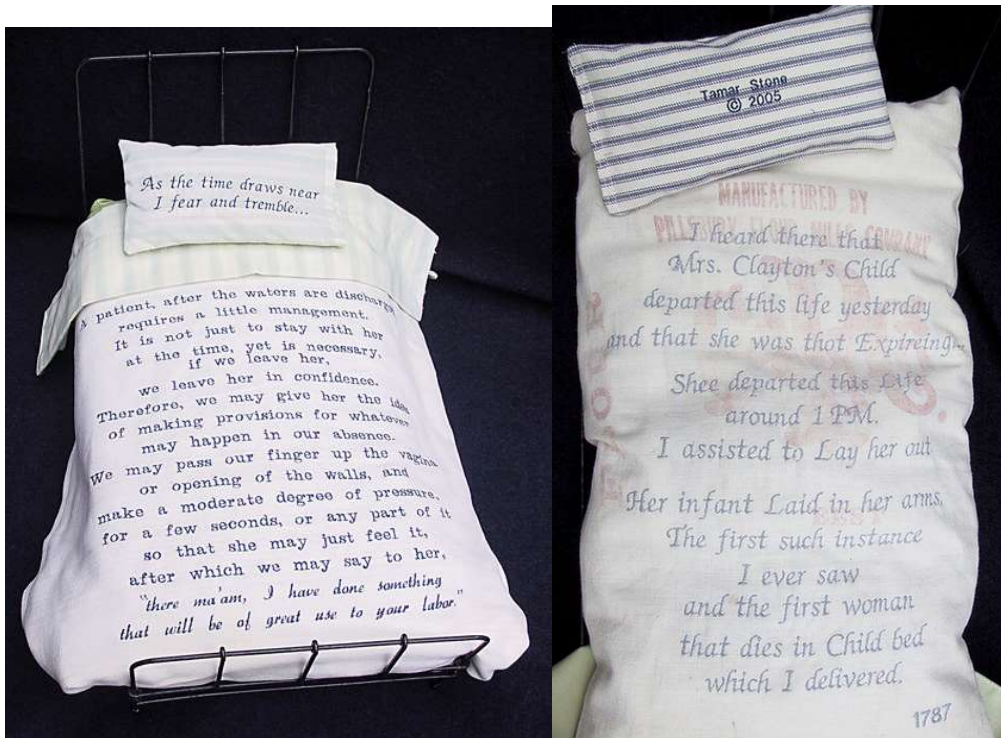 As the time draws near
I fear and tremble...
A patient, after the waters are discharged
requires a little management.
It is not just to stay with her
at the time, yet is necessary,
if we leave her,
we leave her in confidence.
Therefore, we may give her the idea
of making provisions for whatever
may happen in our absence.
We may pass our finger up the vagina
or opening of the walls, and
make a moderate degree of pressure,
for a few seconds, or any part of it
so that she may just feel it,
after which we may say to her,
"there ma'am, I have done something
that will be of great use to your labor."
Tamar Stone
© 2005
MANUFACTURED BY
PILLSBURY FLOUR MILLS COMPANY
I heard there that
Mrs. Clayton's Child
departed this life yesterday
and that she was thot Expireing...
Shee departed this Life
around 1 PM.
I assisted to Lay her out
Her infant Laid in her arms,
The first such instance
I ever saw
and the first woman
that dies in Child bed
which I delivered.
1787